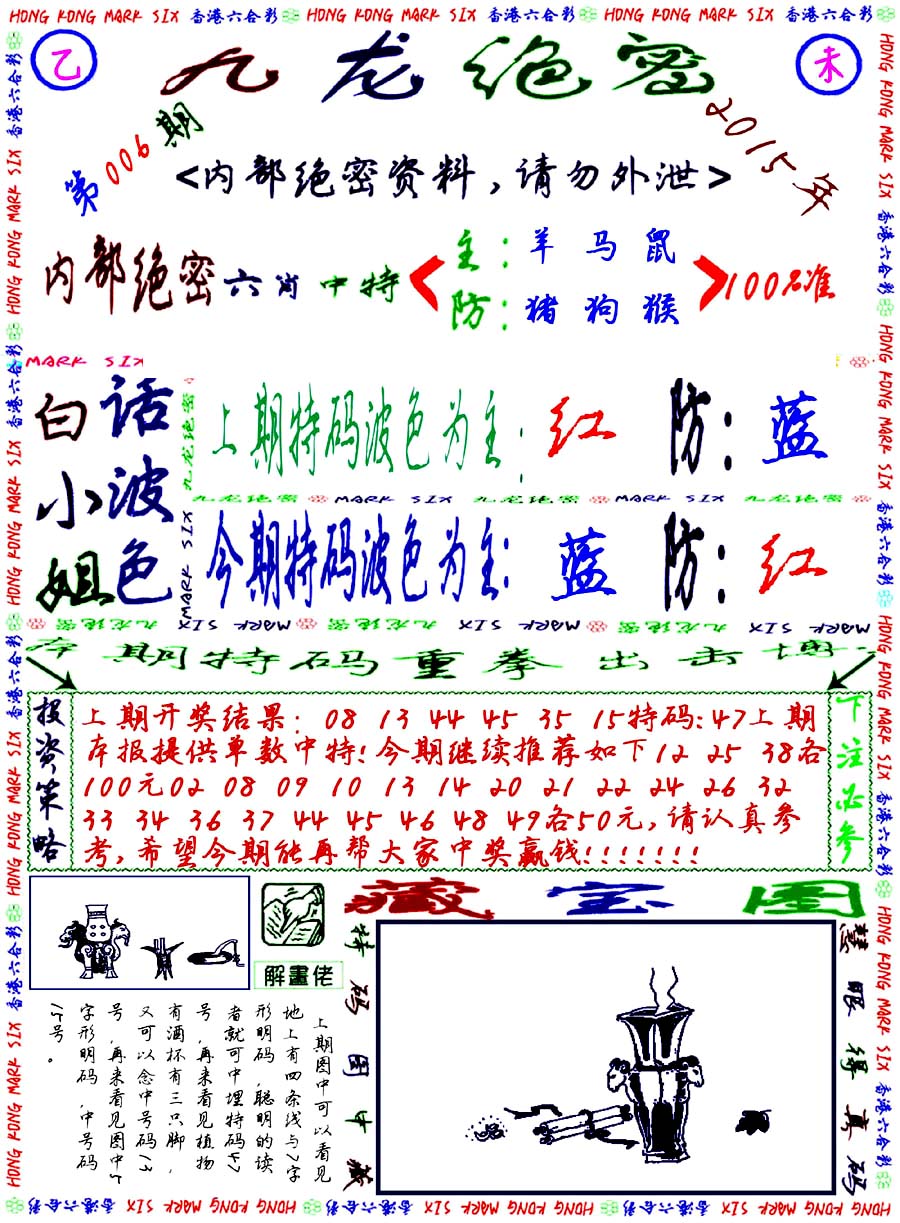 HONG KONG MARK SIX 香港六合彩 HONG KONG MARK SIX 香港六合彩 HONG KONG MARK SIX 香港六合彩
乙
九龙绝密
未
第006期
2015年
<内部绝密资料,请勿外泄>
内部绝密六肖中特
主:羊马鼠
防:猪狗猴
100%准
MARK SIX
白话波色
小姐
上期特码波色为主:红 防:蓝
九龙绝密 MARK SIX 九龙绝密 MARK SIX 九龙绝密
今期特码波色为主:蓝 防:红
九龙绝密 MARK SIX 九龙绝密 MARK SIX 九龙绝密 MARK SIX
期特码重拳出击
投资策略
上期开奖结果: 08 13 44 45 35 15特码:47上期
本报提供单数中特!今期继续推荐如下12 25 38各
100元02 08 09 10 13 14 20 21 22 24 26 32
33 34 36 37 44 45 46 48 49各50元,请认真参
考,希望今期能再帮大家中奖赢钱!!!!!!!
下注必参
解畫佬
藏宝图
特码图中藏
慧眼得真码
上期图中可以看见
地上有四条线与7字
形明码,聪明的读
者就可中埋特码47
号,再来看见植物
有酒杯有三只脚,
又可以念中号码13
号,再来看见图中
字形明码,中号码
15号。
HONG KONG MARK SIX 香港六合彩 HONG KONG MARK SIX 香港六合彩 HONG KONG MARK SIX 香港六合彩